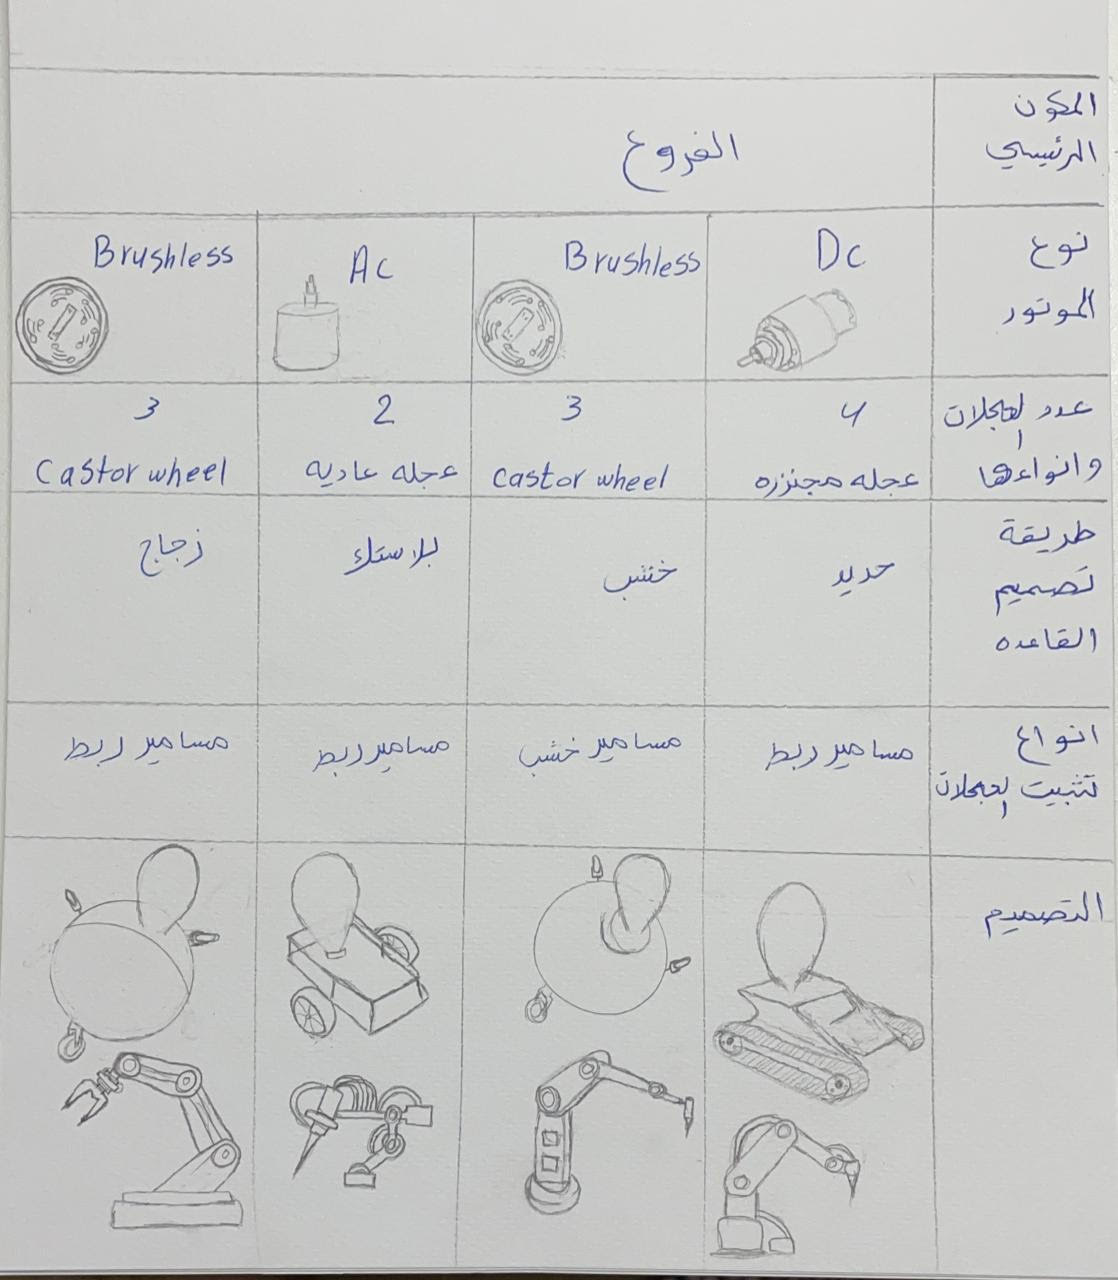 المكون
الرئيسي
الفروع
نوع
الموتور
Dc
Brushless
Ac
Brushless
عدد العجلات
وانواعها
4
عجله مجنزره
3
castor wheel
2
عجله عاديه
3
Castor wheel
طريقة
تصميم
القاعده
حديد
خشب
بلاستك
زجاج
انواع
تثبيت العجلات
مسامير ربط
مسامير خشب
مسامير ربط
مسامير ربط
التصميم